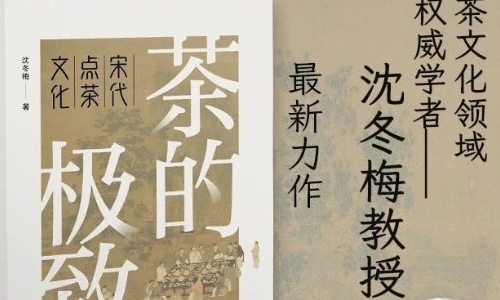 茶的
极致
宋代
点茶
文化
沈冬梅 著
茶文化领域
权威学者——
沈冬梅教授
最新力作